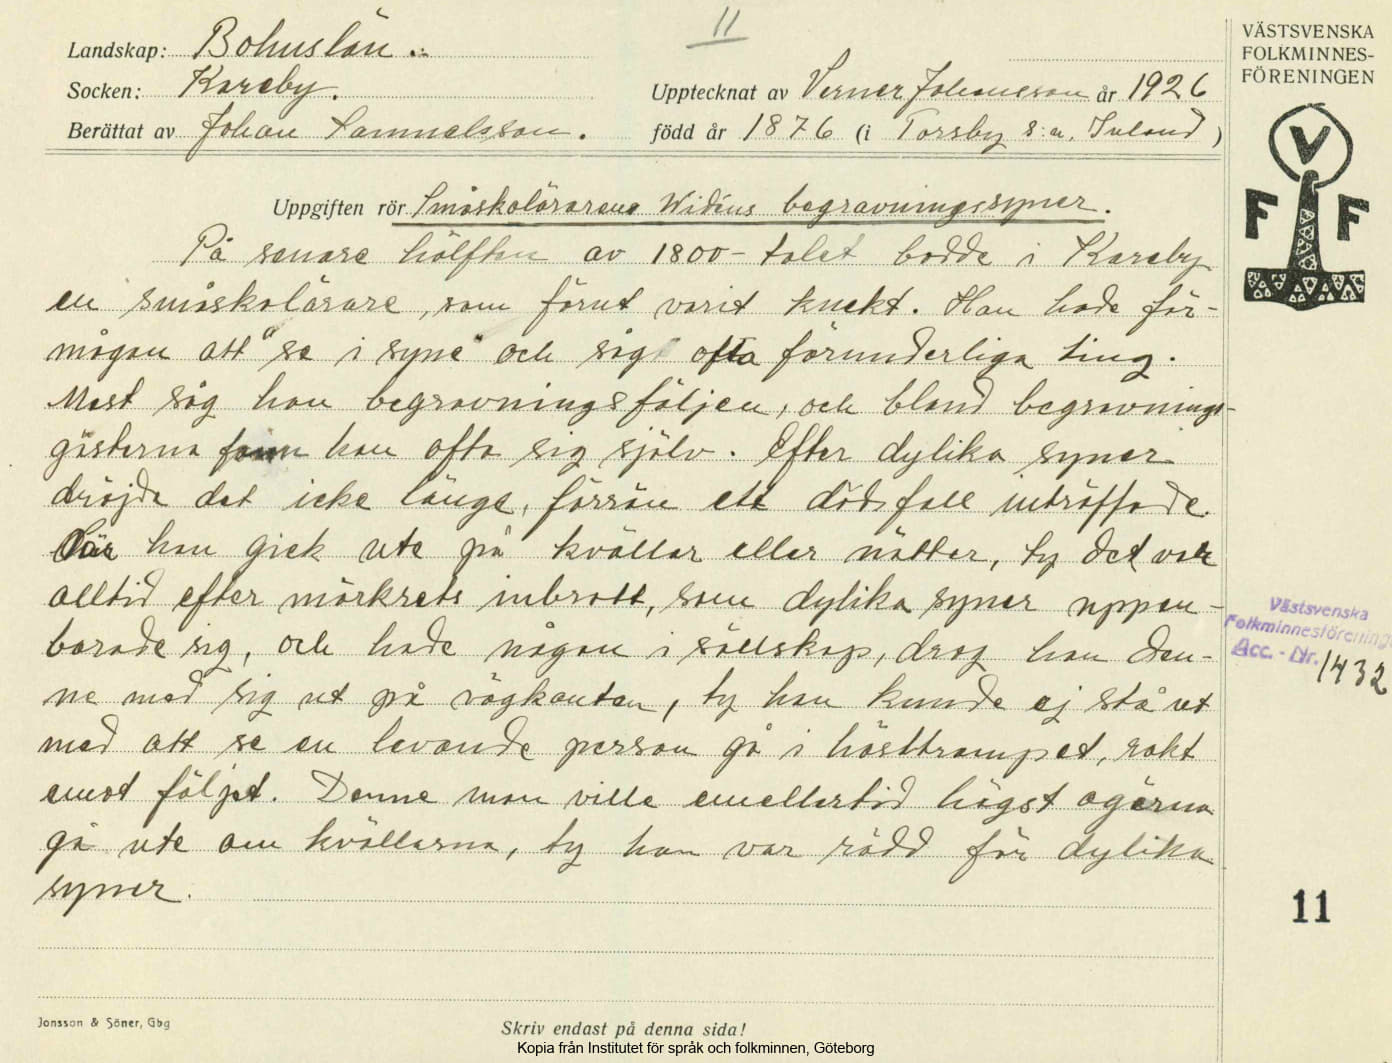 11
VÄSTSVENSKA
FOLKMINNES-
FÖRENINGEN
Landskap: Bohuslän.
Socken: Kareby. Upptecknat av Verner Johansson år 1926
Berättat av Johan Samuelsson. född år 1876 (i Torsby s:n, Inland)
V
F F
Uppgiften rör Småskolärarens Widéns begravningssyner.
På senare hälften av 1800-talet bodde i Kareby
en småskolärare, som förut varit knekt. Han hade för-
mågan att "se i syne" och såg ofta förunderliga ting.
Mest såg han begravningsföljen, och bland begravnings-
gästerna fann han ofta sig själv. Efter dylika syner
dröjde det icke länge, förrän ett dödsfall inträffade.
När han gick ute på kvällar eller nätter, ty det var
alltid efter mörkrets inbrott, som dylika syner uppen-
barade sig, och hade någon i sällskap, drog han den-
ne med sig ut på vägkanten, ty han kunde ej stå ut
med att se en levande person gå i hästtrampet, rakt
emot följet. Denne man ville emellertid högst ogärna
gå ute om kvällarna, ty han var rädd för dylika
syner.
Västsvenska
Folkminnesförening
Acc. - Nr. 1432
11
Jonsson & Söner, Gbg
Skriv endast på denna sida!
Kopia från Institutet för språk och folkminnen, Göteborg